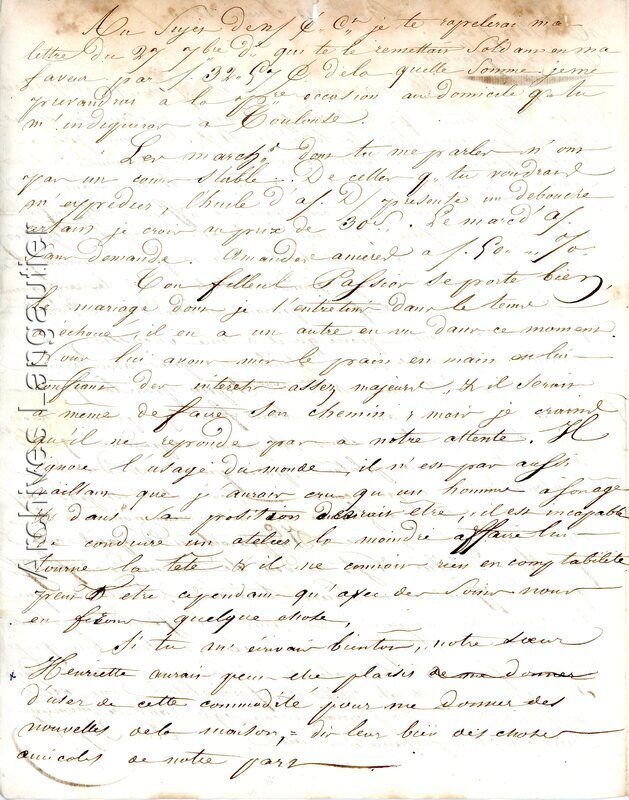 Au Sujet de n/ C. Ct. je te rapelerai ma
lettre du 27 7bre dr. qui te le remettait Soldant en ma
faveur par f. 32.50 de la quelle Somme je me
prevaudrai à la 1ere occasion au domicile q. tu
m'indiqueras a Toulouse.
Les march. dont tu me parles n'ont
pas un cours stable. De celles q. tu voudrais
m'expedier, l'huile d'a. D. presente un debouché
certain je crois au prix de 30s. Le marc d'a.
sans demande. Amandes ameres a f. 50
Ton filleul Passior se porte bien,
le mariage dont je l'entretins dans le tems
a echoué, il en a un autre en vu dans ce moment
Nous lui avons mis le pain en main en lui
confiant des interets assez majeurs, & il serait
a même de faire Son chemin, mais je crains
qu'il ne reponde pas a notre attente. Il
ignore l'usage du monde, il n'est pas aussi
vaillant que j'aurais cru qu'un homme a son age
et dans Sa position devrait etre, il est incapable
de conduire un atelier, la moindre affaire lui
tourne la tete & il ne connoit rien en comptabilité
peut etre cependant qu'avec des Soins nous
en ferons quelque chose.
Si tu m'ecrivais bientot, notre sœur
x Henriette aurait peut-etre plaisir de me donner
d'user de cette commodité pour me donner des
nouvelles de la maison, = dis leur bien des choses
amicales de notre part
Archives Langautier